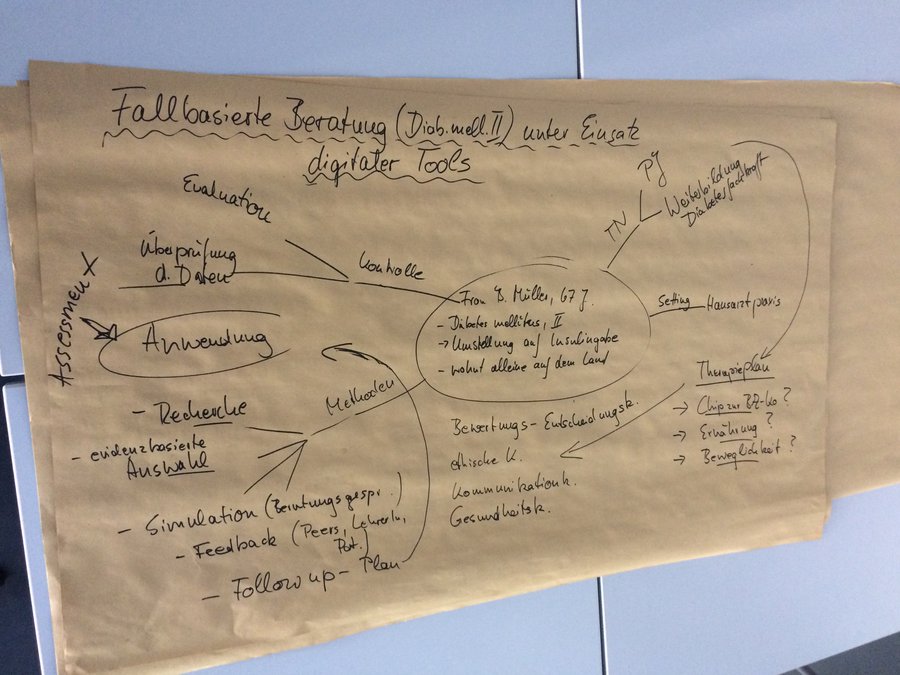 Fallbasierte Beratung (Diab. mell. II) unter Einsatz
digitaler Tools
Evaluation
Überprüfung
d. Daten
Kontrolle
Assessment
Anwendung
Methoden
- Recherche
- evidenzbasierte
Auswahl
- Simulation (Beratungsgespr.)
- Feedback (Peers, LehrerIn,
Pat.)
- Follow up - Plan
Frau B. Müller, 67 J.
- Diabetes mellitus, II
→ Umstellung auf Insulingabe
- wohnt alleine auf dem Land
TN
PJ
Weiterbildung
Diabetesfachkraft
Setting
Hausarztpraxis
Therapieplan
→ Chip zur BZ-Ko?
→ Ernährung?
→ Beweglichkeit?
Bewertungs-Entscheidungsk.
ethische K.
Kommunikationk.
Gesundheitsk.